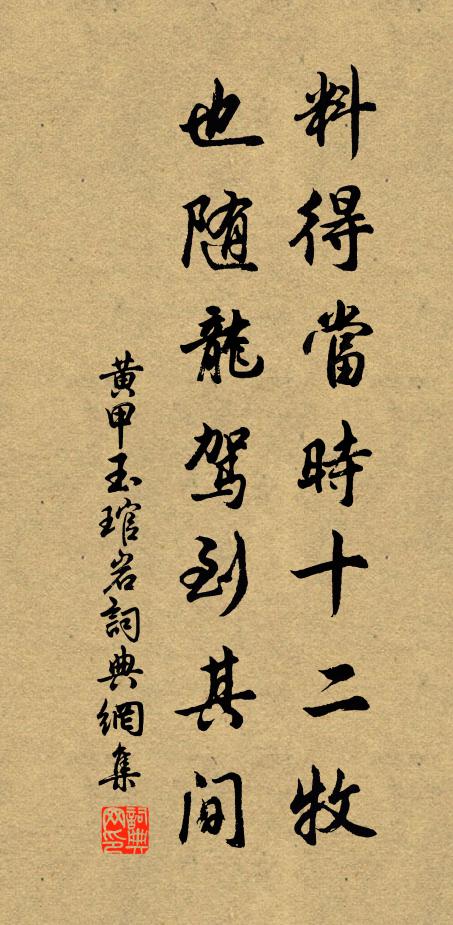 料得當時十二牧
也随龍駕到其間
黄甲玉琯岩詞典網集
詞典網印